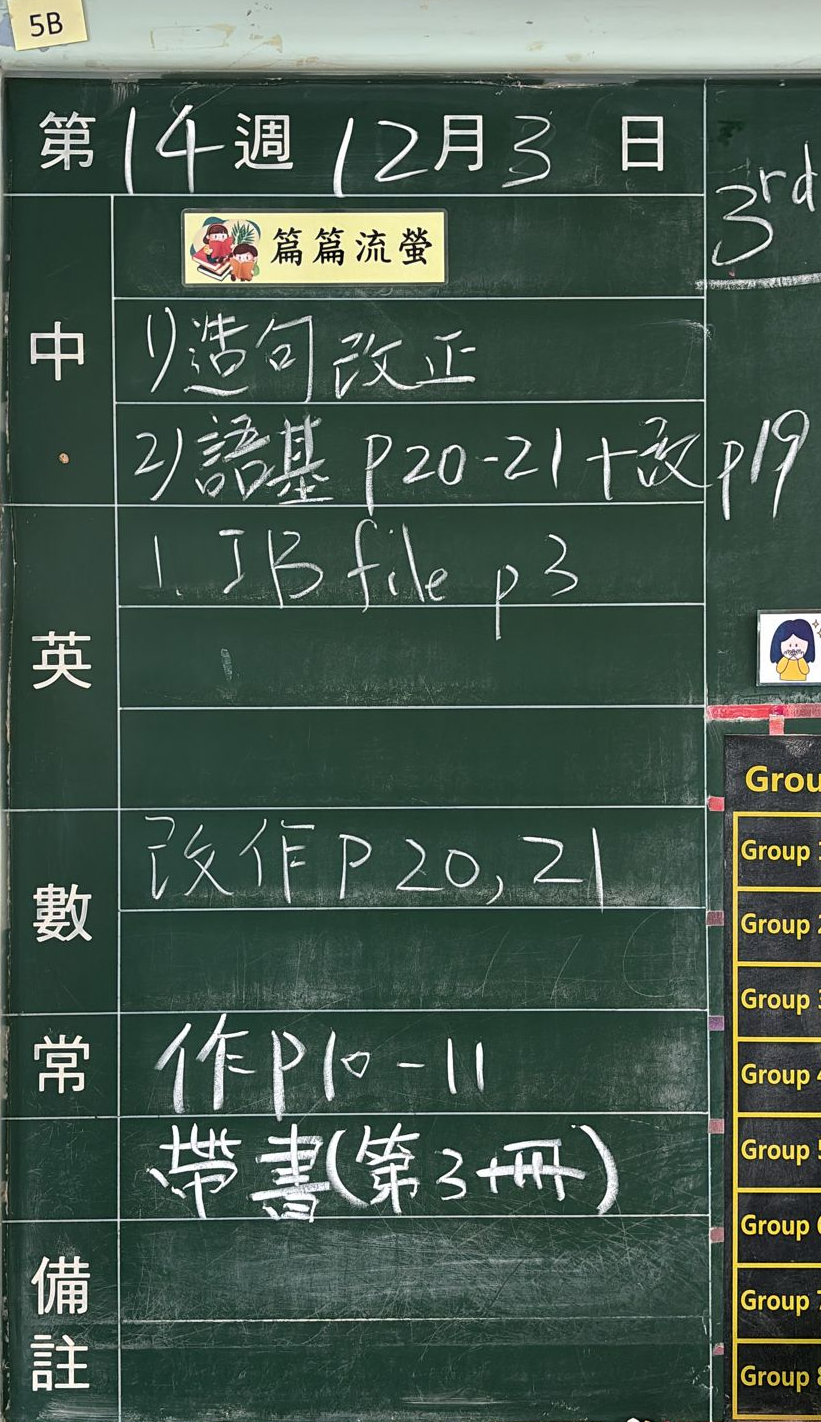 5B
第14週 12月3日
3rd
中
篇篇流螢
1) 造句改正
2) 語基 p20-21+改p19
英
1. IB file p3
數
改作P20, 21
常
作P10-11
帶書(第3冊)
備註
Grou
Group 1
Group 2
Group 3
Group 4
Group 5
Group 6
Group 7
Group 8